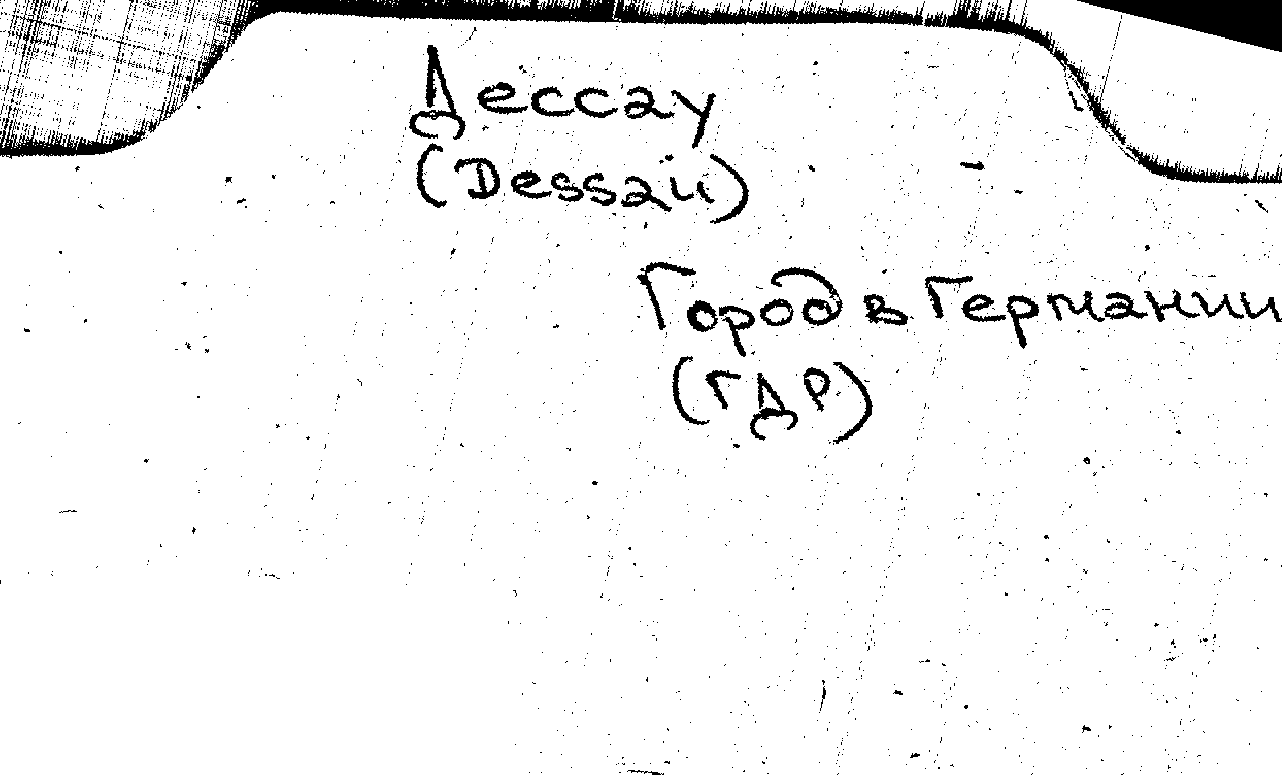 Дессау
(Dessau)
Город в Германии
(ГДР)